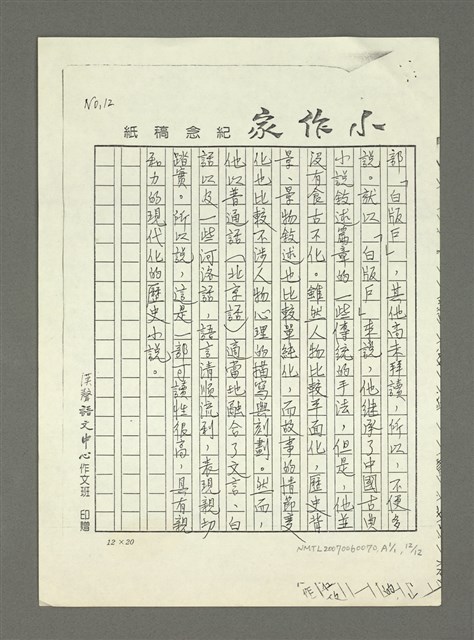 No.12
小作家紀念稿紙
部「白版戶」，其他尚未拜讀，所以，不便多
說。就以「白版戶」來說，他繼承了中國古典
小說敘述篇章的一些傳統的手法，但是，他並
沒有食古不化。雖然人物比較平面化，歷史背
景、景物敘述也比較單純化，而故事的情節變
化也比較不涉人物心理的描寫與刻劃。然而，
他以普通話（北京話）適當地融合了文言、白
話以及一些河洛話，語言清順流利，表現親切
踏實。所以說，這是一部可讀性很高，具有親
和力的現代化的歷史小說。
漢聲語文中心作文班 印贈
12×20
NMTL20070060070,A1/1,12/12